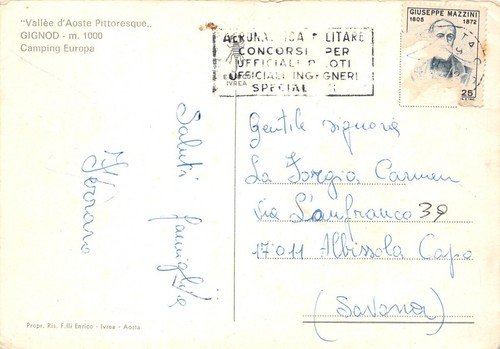 "Vallée d'Aoste Pittoresque„
GIGNOD - m. 1000
Camping Europa
AERONAUTICA MILITARE
CONCORSI PER
UFFICIALI PILOTI
UFFICIALI INGEGNERI
SPECIALI
IVREA
GIUSEPPE MAZZINI
1805 1872
25
Saluti famiglia
Ferraro
Gentile signora
La Forgia Carmen
Via Lanfranco 39
17011 Albissola Capo
(Savona)
Propr. Ris. F.lli Enrico - Ivrea - Aosta